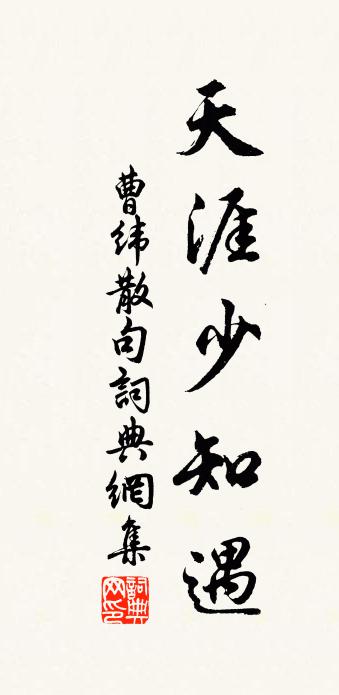 天涯少知遇
曹緯散句詞典網集
詞典網印